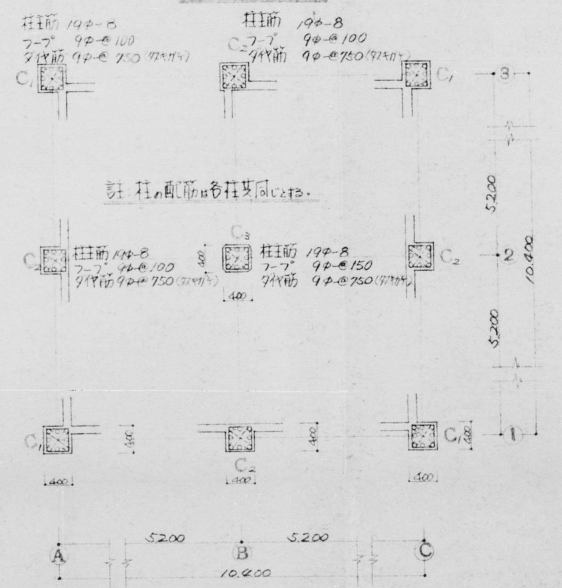 柱主筋 19φ-8
フープ 9φ-@100
ダイヤ筋 9φ-@750
C1
柱主筋 19φ-8
C2 フープ 9φ-@100
ダイヤ筋 9φ-@750
C1
3
註. 柱の配筋は各柱共同じとする.
5.200
C2
柱主筋 19φ-8
フープ 9φ-@100
ダイヤ筋 9φ-@750
C3
400
400
柱主筋 19φ-8
フープ 9φ-@150
ダイヤ筋 9φ-@750
C2
2
10.400
5.200
C1
400
400
C2
400
400
C1
400
400
1
5.200
5.200
A
B
C
10.400